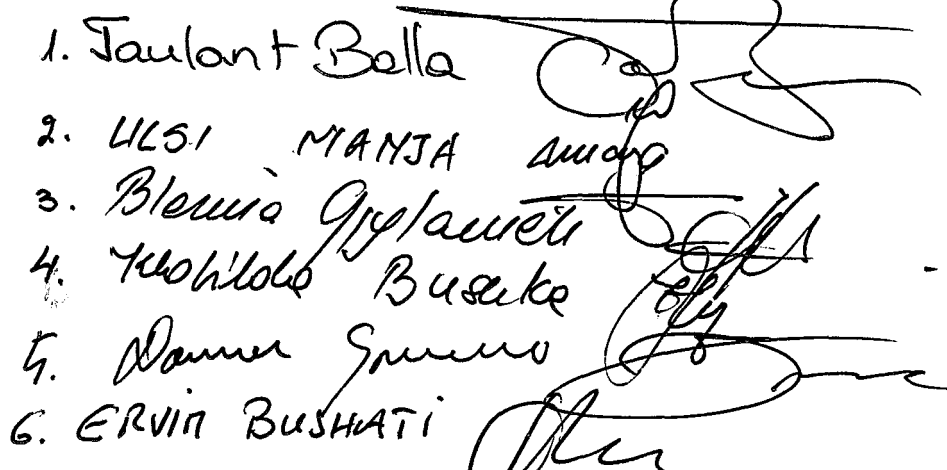 1. Taulant Balla
2. ULSI MANJA
3. Blerina Gjylameti
4. Klotilda Bushka
5. Damian Gjiknuri
6. ERVIN BUSHATI